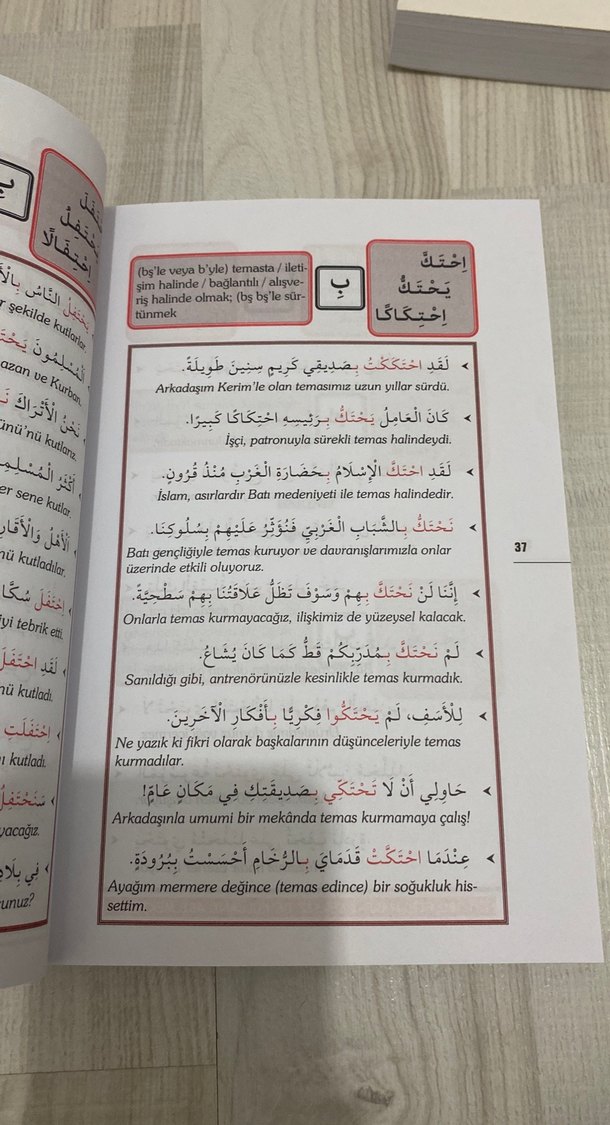 اِحْتَكَّ
يَحْتَكُّ
اِحْتِكَاكًا
بِ
(bş'le veya b'yle) temasta / ileti-
şim halinde / bağlantılı / alışve-
riş halinde olmak; (bş bş'le sür-
tünmek
لَقَدِ احْتَكَكْتُ بِصَدِيقِي كَرِيمٍ سِنِينَ طَوِيلَةً.
Arkadaşım Kerim'le olan temasımız uzun yıllar sürdü.
كَانَ الْعَامِلُ يَحْتَكُّ بِرَئِيسِهِ احْتِكَاكًا كَبِيرًا.
İşçi, patronuyla sürekli temas halindeydi.
لَقَدِ احْتَكَّ الْإِسْلَامُ بِحَضَارَةِ الْغَرْبِ مُنْذُ قُرُونٍ.
İslam, asırlardır Batı medeniyeti ile temas halindedir.
نَحْتَكُّ بِالشَّبَابِ الْغَرْبِيِّ فَنُؤَثِّرُ عَلَيْهِمْ بِسُلُوكِنَا.
Batı gençliğiyle temas kuruyor ve davranışlarımızla onlar
üzerinde etkili oluyoruz.
إِنَّنَا لَنْ نَحْتَكَّ بِهِمْ وَسَوْفَ تَظَلُّ عَلَاقَتُنَا بِهِمْ سَطْحِيَّةً.
Onlarla temas kurmayacağız, ilişkimiz de yüzeysel kalacak.
لَمْ نَحْتَكَّ بِمُدَرِّبِكُمْ قَطُّ كَمَا كَانَ يُشَاعُ.
Sanıldığı gibi, antrenörünüzle kesinlikle temas kurmadık.
لِلْأَسَفِ، لَمْ يَحْتَكُّوا فِكْرِيًّا بِأَفْكَارِ الْآخَرِينَ.
Ne yazık ki fikri olarak başkalarının düşünceleriyle temas
kurmadılar.
حَاوِلِي أَنْ لَا تَحْتَكِّي بِصَدِيقَتِكِ فِي مَكَانٍ عَامٍّ!
Arkadaşınla umumi bir mekânda temas kurmamaya çalış!
عِنْدَمَا احْتَكَّتْ قَدَمَايَ بِالرُّخَامِ أَحْسَسْتُ بِبُرُودَةٍ.
Ayağım mermere değince (temas edince) bir soğukluk his-
settim.
37
يَحْتَفِلُ
اِحْتِفَالًا
يَحْتَفِلُ النَّاسُ
şekilde kutlarlar.
اَلْمُسْلِمُونَ
ve Kurban
نَحْنُ الْأَتْرَاكَ
kutlarız.
أَكْثَرُ
sene kutlar.
اَلْأَهْلُ
kutladılar.
اِحْتَفَلَ
tebrik etti.
لَقَدِ احْتَفَلَ
kutladı.
اِحْتَفَلَتِ
kutladı.
سَنَحْتَفِلُ
فِي